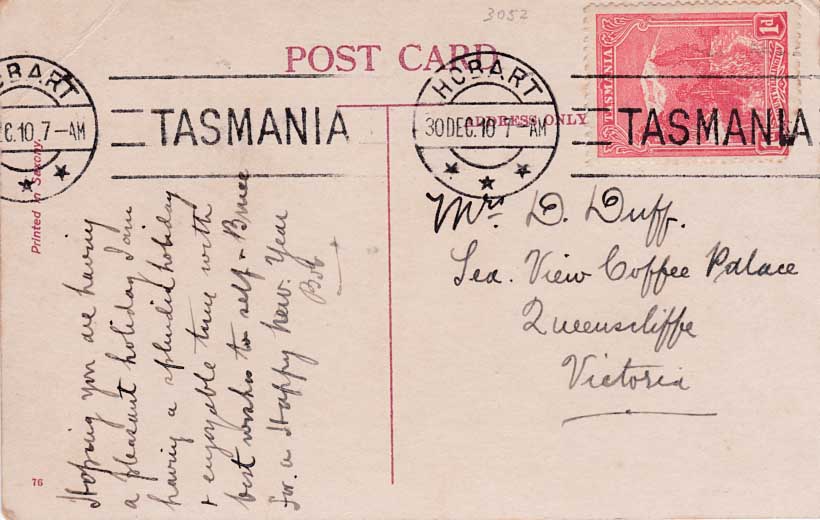 3052
POST CARD
ADDRESS ONLY
TASMANIA
1d
HOBART
30 DEC. 10 7-AM
TASMANIA
OBART
C. 10. 7-AM
TASMANIA
Printed in Saxony.
Hoping you are having
a pleasant holiday I am
having a splendid holiday
+ enjoyable time with
best wishes to self + Bruce
for a Happy New. Year
Bob +
Mrs. D. Duff.
Sea. View Coffee Palace
Queenscliffe
Victoria
76